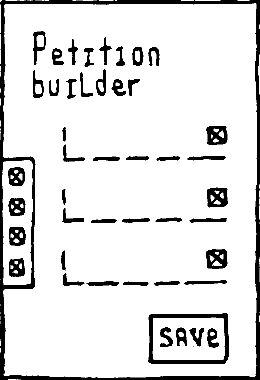 Petition
builder
SAVe